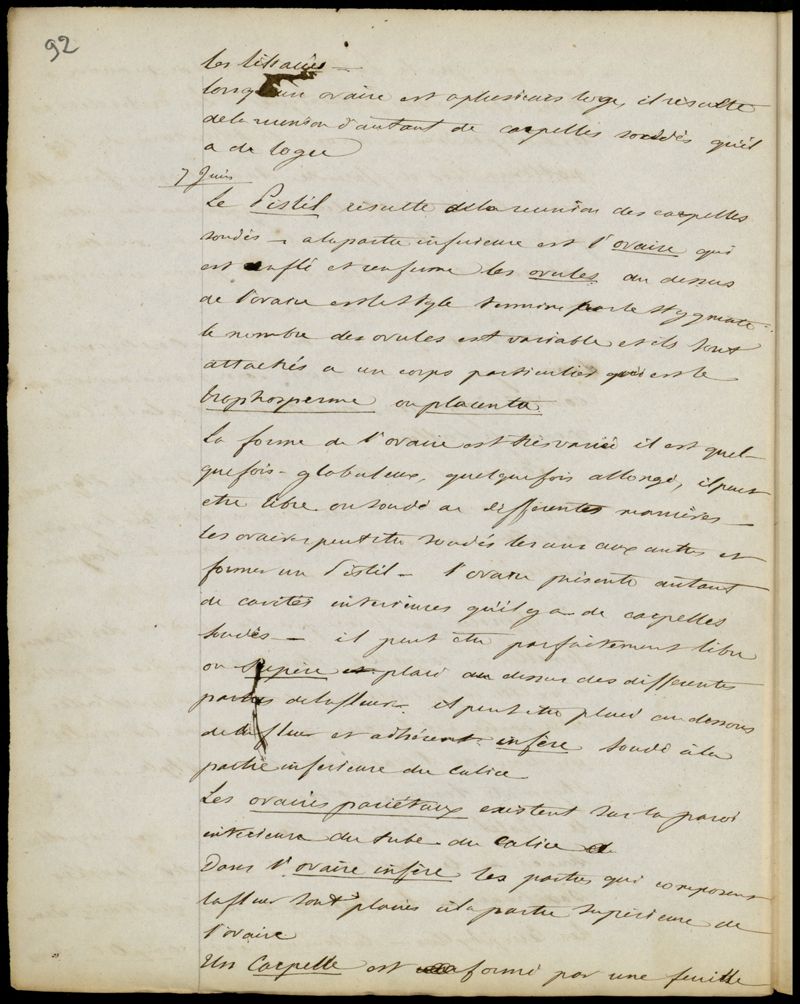 92
les liliacées —
lorsqu'un ovaire est a plusieurs loge, il resulte
de la reunion d'autant de carpelles soudés qu'il
a de loges
7 Juin
Le Pistil resulte de la reunion des carpelles
soudés — a la partie inferieure est l'ovaire qui
est enflé et renferme les ovules au dessus
de l'ovaire est le style terminé par le stygmate
le nombre des ovules est variable et ils sont
attachés a un corps particulier qui est le
trophosperme ou placenta
La forme de l'ovaire est très varié il est quel-
quefois - globuleux, quelquefois allongé, il peut
etre libre ou soudé de differentes manières —
les ovaires peut etre soudés les uns aux autres et
former un Pistil — l'ovaire présente autant
de cavités interieures qu'il y a de carpelles
soudés — il peut être parfaitement libre
ou supère et placé au dessus des differentes
parties de la fleur. il peut etre placé au dessous
de la fleur et adhérent infère soudé à la
partie inferieure du calice
Les ovaires pariétaux existent sur la paroi
interieure du tube du calice
Dans l'ovaire infère les parties qui composent
la fleur sont placés à la partie supérieure de
l'ovaire
Un Carpelle est formé par une feuille